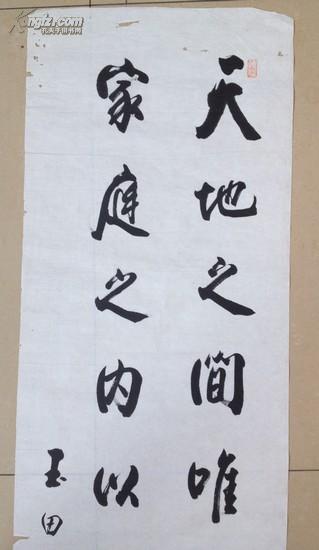 天地之間唯
家庭之内以
玉田
Kongfz.com
孔夫子旧书网